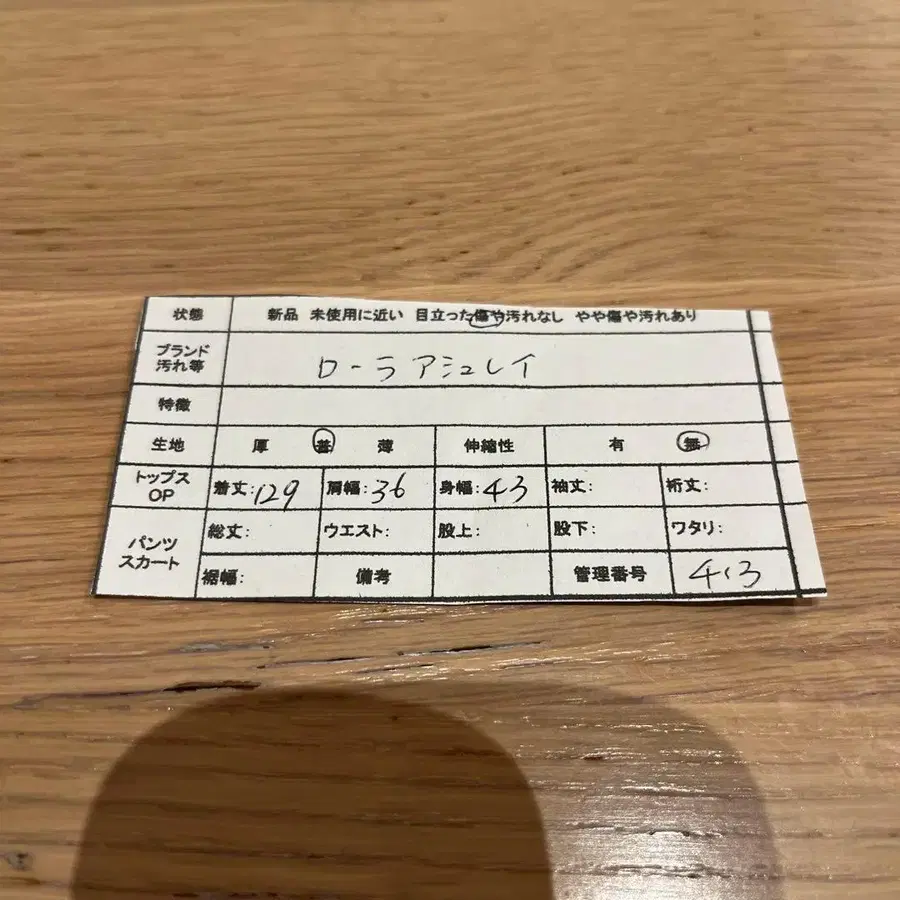 状態 新品 未使用に近い 目立った傷や汚れなし やや傷や汚れあり
ブランド 汚れ等 ローラアシュレイ
特徴
生地 厚 普 薄 伸縮性 有 無
トップス OP 着丈:129 肩幅:36 身幅:43 袖丈: 裄丈:
パンツ スカート 総丈: ウエスト: 股上: 股下: ワタリ:
裾幅: 備考 管理番号